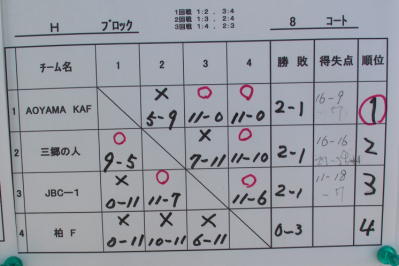 H ブロック
1回戦 1:2 , 3:4
2回戦 1:3 , 2:4
3回戦 1:4 , 2:3
8 コート
チーム名 1 2 3 4 勝 敗 得失点 順位
1 AOYAMA KAF × 5-9 ○ 11-0 ○ 11-0 2-1 16-9 1
2 三郷の人 ○ 9-5 × 7-11 ○ 11-10 2-1 16-16 2
3 JBCー1 × 0-11 ○ 11-7 ○ 11-6 2-1 11-18 -7 3
4 柏 F × 0-11 × 10-11 × 6-11 0-3 4